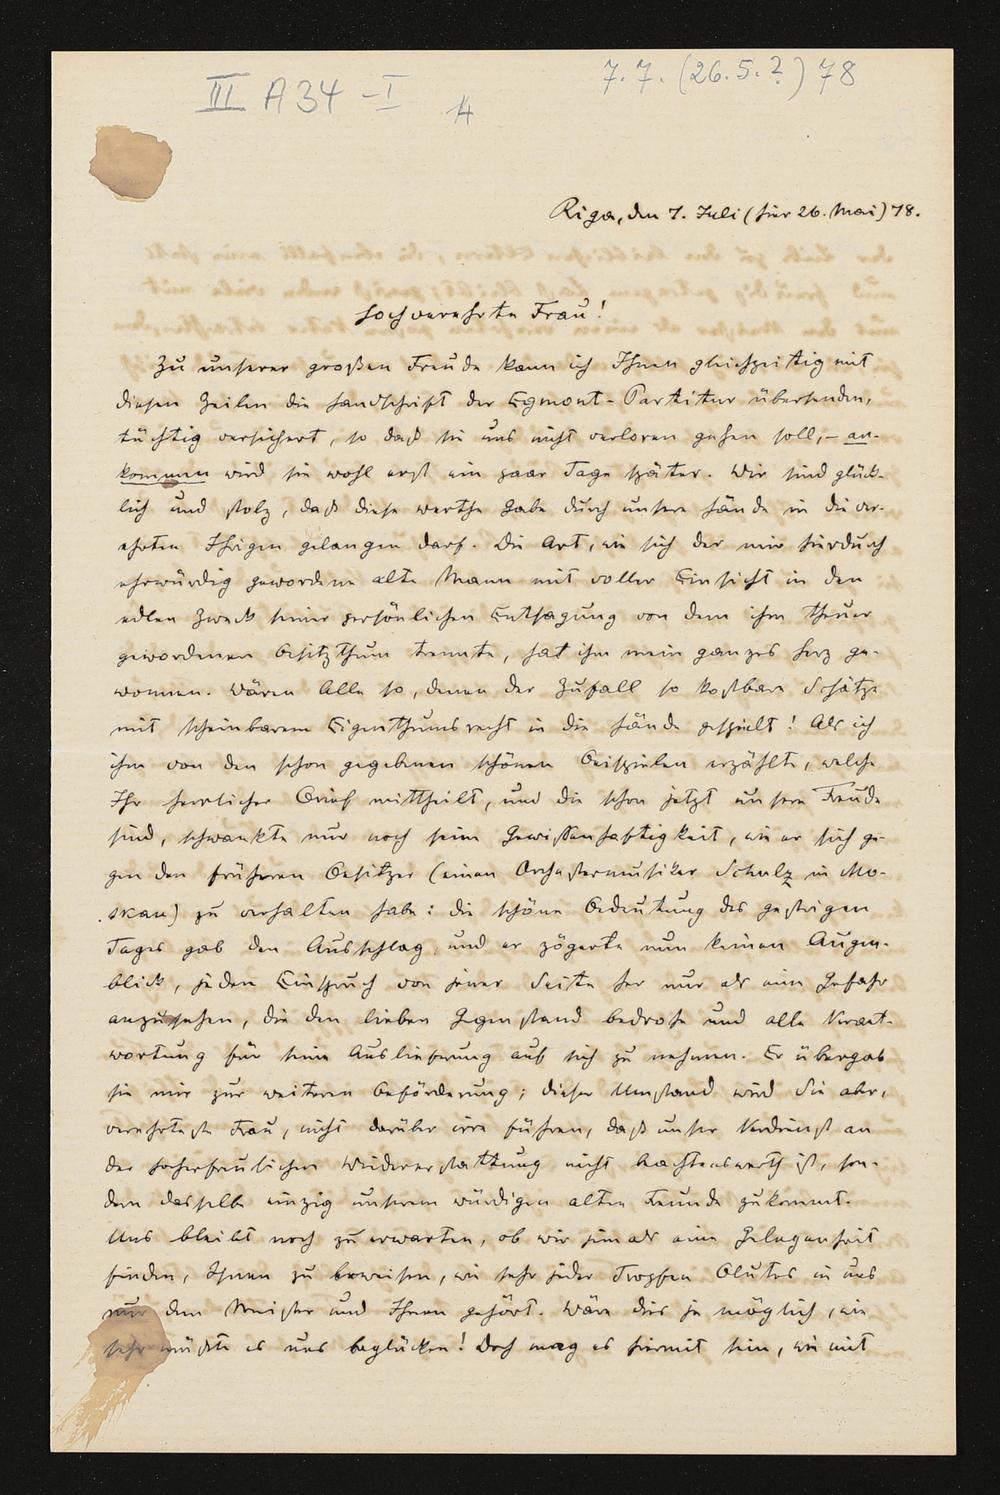 III A 34 - I
4
7. 7. (26. 5. ?) 78
Riga, den 7. Juli (hier 26. Mai) 78.
Hochverehrte Frau!
Zu unserer großen Freude kann ich Ihnen gleichzeitig mit
diesen Zeilen die Handschrift der Egmont-Partitur übersenden,
tüchtig versichert, so daß sie uns nicht verloren gehen soll, – an-
kommen wird sie wohl erst ein paar Tage später. Wir sind glück-
lich und stolz, daß diese werthe Gabe durch unsere Hände in die ver-
ehrten Ihrigen gelangen darf. Die Art, wie sich der mir hierdurch
ehrwürdig gewordene alte Mann mit voller Einsicht in den
edlen Zweck seiner persönlichen Entsagung von dem ihm theuer
gewordenen Besitzthum trennte, hat ihm mein ganzes Herz ge-
wonnen. Wären Alle so, denen der Zufall so kostbare Schätze
mit scheinbarem Eigenthumsrecht in die Hände gespielt! Als ich
ihm von den schon gegebenen schönen Beispielen erzählte, welche
Ihr herrlicher Brief mittheilt, und die schon jetzt unsere Freude
sind, schwankte nur noch seine Gewissenhaftigkeit, wie er sich ge-
gen den früheren Besitzer (einen Orchestermusiker Schulz in Mo-
skau) zu verhalten habe: die schöne Bedeutung des gestrigen
Tages gab den Ausschlag, und er zögerte nun keinen Augen-
blick, jeden Einspruch von jener Seite her nur als eine Gefahr
anzusehen, die den lieben Gegenstand bedrohe und alle Verant-
wortung für seine Auslieferung auf sich zu nehmen. Er übergab
sie mir zur weiteren Beförderung; dieser Umstand wird Sie aber,
verehrteste Frau, nicht darüber irre führen, daß unser Verdienst an
der hocherfreulichen Wiedererstattung nicht beachtenswerth ist, son-
dern dasselbe einzig unserem würdigen alten Freunde zukommt.
Uns bleibt noch zu erwarten, ob wir jemals eine Gelegenheit
finden, Ihnen zu beweisen, wie sehr jeder Tropfen Blutes in uns
nur dem Meister und Ihnen gehört. Wäre dies je möglich, wie
sehr müßte es uns beglücken! Doch mag es hiermit sein, wie mit